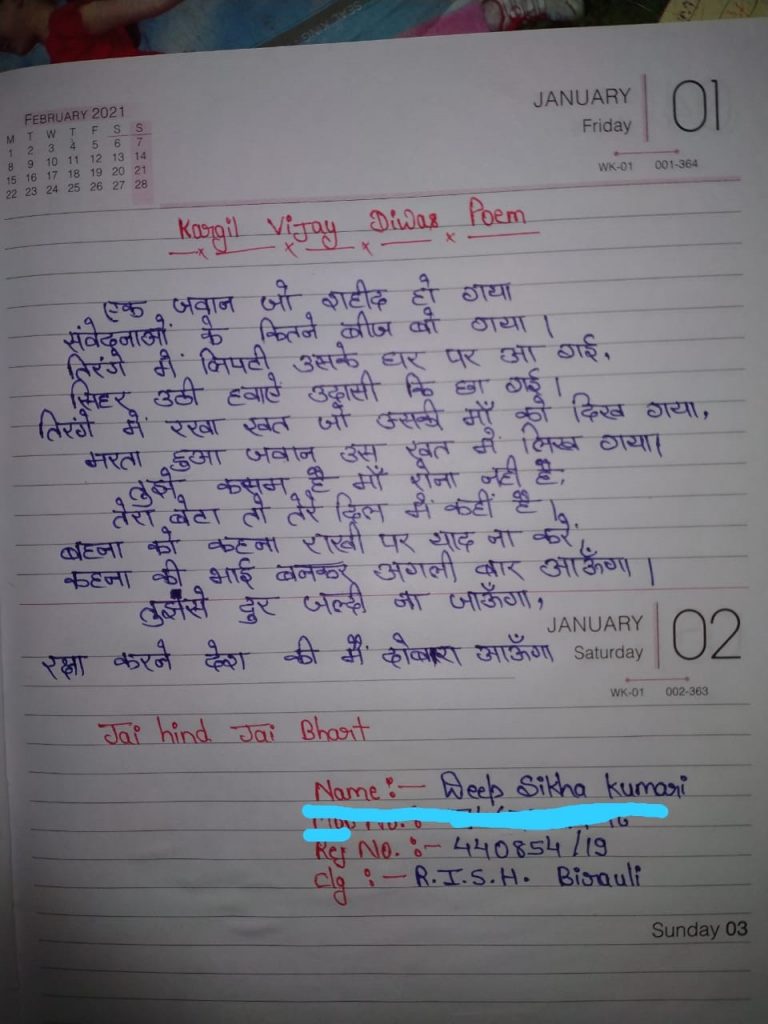 FEBRUARY 2021
M T W T F S S
1 2 3 4 5 6 7
8 9 10 11 12 13 14
15 16 17 18 19 20 21
22 23 24 25 26 27 28
JANUARY 01
Friday
WK-01 001-364
Kargil Vijay Diwas Poem
एक जवान जो शहीद हो गया
संवेदनाओं के कितने बीज बो गया।
तिरंगे में लिपटी उसके घर पर आ गई,
सिहर उठी हवाएँ उदासी कि छा गई।
तिरंगे में रखा खत जो उसकी माँ को दिख गया,
मरता हुआ जवान उस खत में लिख गया।
तुझे कसम है माँ रोना नही है,
तेरा बेटा तो तेरे दिल में कहीं है।
बहना को कहना राखी पर याद ना करे,
कहना की भाई बनकर अगली बार आऊँगा।
तुझसे दुर जल्दी ना जाऊँगा,
JANUARY 02
Saturday
रक्षा करने देश की मैं दोबारा आऊँगा
WK-01 002-363
Jai hind Jai Bhart
Name:- Deep Sikha Kumari
Reg No.:- 440854/19
Clg :- R.I.S.H. Birauli
Sunday 03